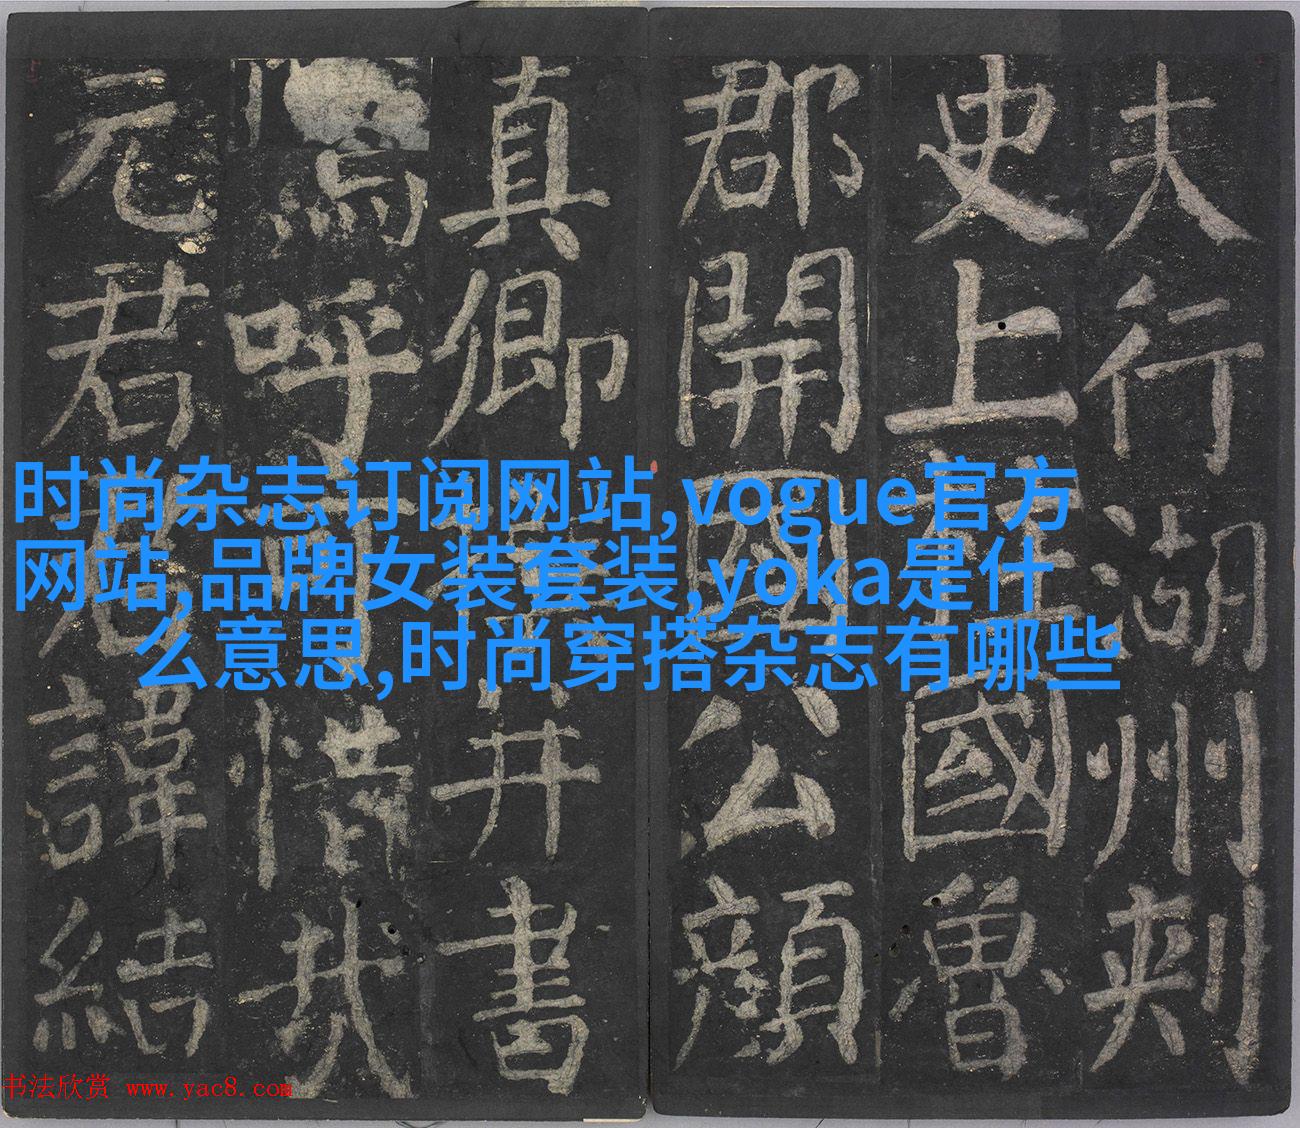 夫行湖州刺
史上柱國魯
郡開國公顏
真卿撰并書
嗚呼可惜哉
元君君諱結
时尚杂志订阅网站,vogue官方
网站,品牌女装套装,yoka是什
么意思,时尚穿搭杂志有哪些
书法欣赏 www.yac8.com